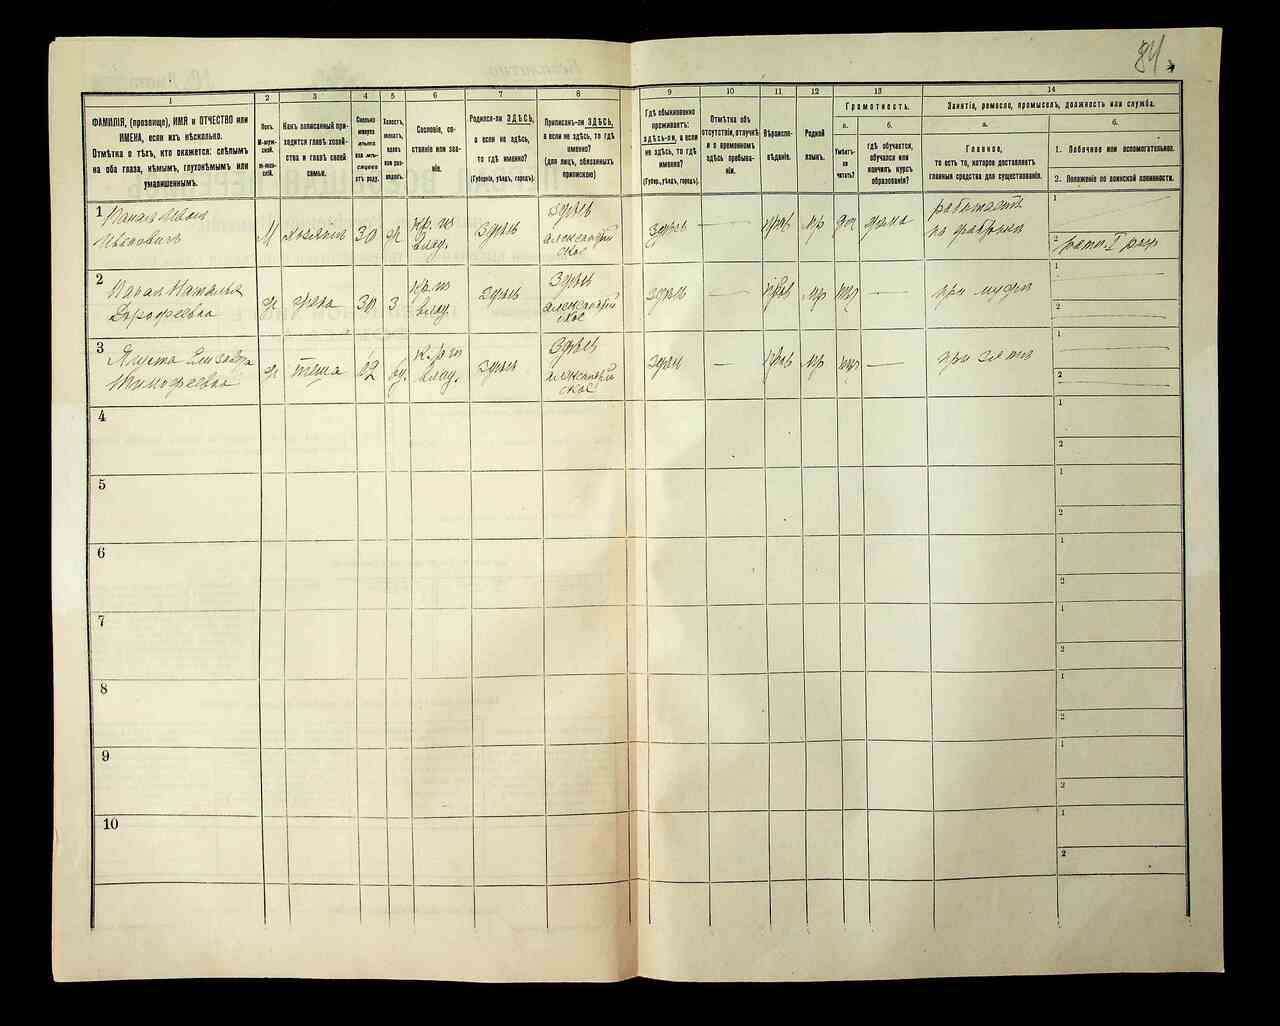 84.
1
2
3
4
5
6
7
8
9
10
11
12
13
14
ФАМИЛІЯ, (прозвище), ИМЯ и ОТЧЕСТВО или
ИМЕНА, если ихъ нѣсколько.
Отмѣтка о тѣхъ, кто окажется: слѣпымъ
на оба глаза, нѣмымъ, глухонѣмымъ или
умалишеннымъ.
Полъ.
М-муж-
ской.
Ж-жен-
скій.
Какъ записанный при-
ходится главѣ хозяй-
ства и главѣ своей
семьи.
Сколько
минуло
лѣтъ
или мѣ-
сяцевъ
отъ роду.
Холостъ,
женатъ,
вдовъ
или раз-
веденъ.
Сословіе, со-
стояніе или зва-
ніе.
Родился-ли ЗДѢСЬ,
а если не здѣсь,
то гдѣ именно?
(Губернія, уѣздъ, городъ).
Приписанъ-ли ЗДѢСЬ,
а если не здѣсь, то гдѣ
именно?
(для лицъ, обязанныхъ
припискою)
Гдѣ обыкновенно
проживаетъ:
здѣсь-ли, а если
не здѣсь, то гдѣ
именно?
(Губер., уѣздъ, городъ).
Отмѣтка объ
отсутствіи, отлучкѣ
и о временномъ
здѣсь пребыва-
ніи.
Вѣроиспо-
вѣданіе.
Родной
языкъ.
Грамотность.
а.
Умѣетъ-
ли
читать?
б.
гдѣ обучается,
обучался или
кончилъ курсъ
образованія?
Занятіе, ремесло, промыселъ, должность или служба.
а.
Главное,
то есть то, которое доставляетъ
главныя средства для существованія.
б.
1. Побочное или вспомогательное.
2. Положеніе по воинской повинности.
1
Иванъ
Ивановичъ
М
хозяинъ
30
ж
Кр. из
влад.
Здѣсь
Здѣсь
здѣсь
прав
дома
работаетъ
на фабрикѣ
1
2
2
Наталья
Дорофеевна
ж
жена
30
З
Кр. из
влад.
Здѣсь
Здѣсь
здѣсь
прав
при мужѣ
1
2
3
Тимофеевна
ж
теща
62
влад.
Здѣсь
Здѣсь
здѣсь
прав
при зятѣ
1
2
4
1
2
5
1
2
6
1
2
7
1
2
8
1
2
9
1
2
10
1
2